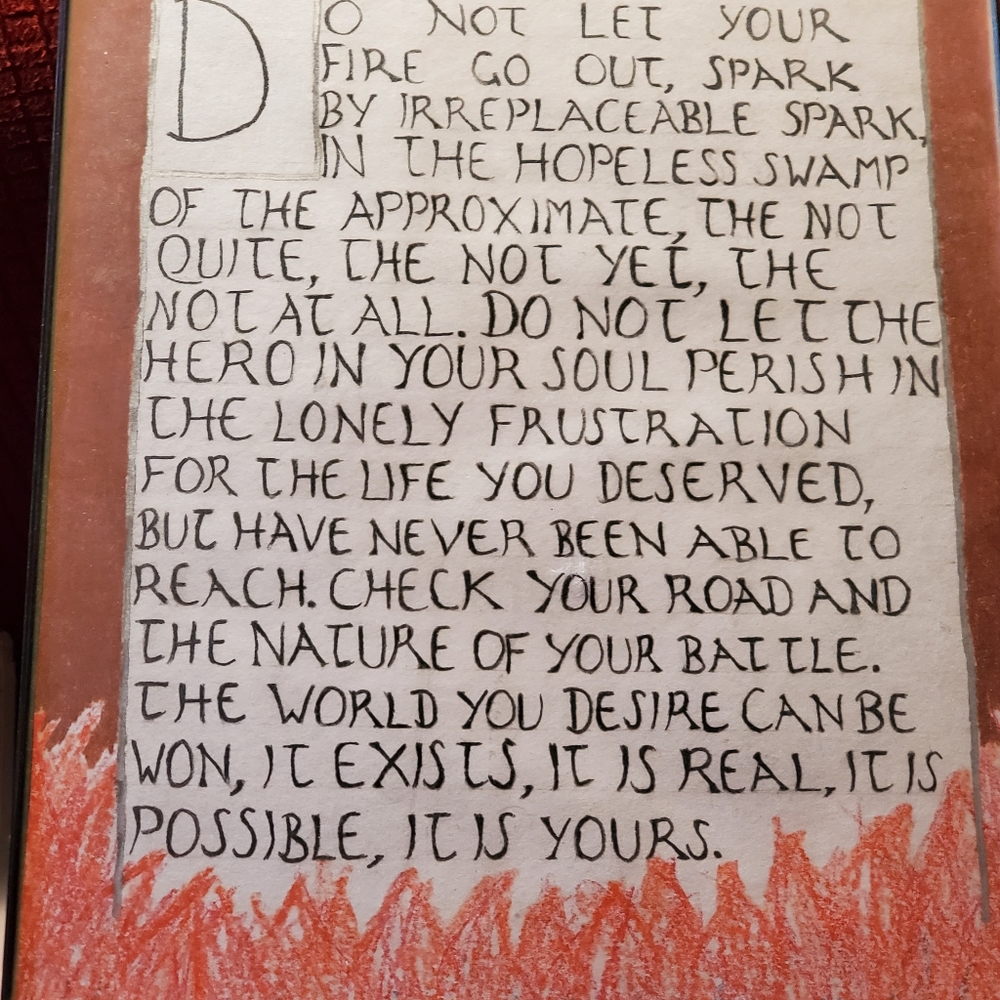 DO NOT LET YOUR
FIRE GO OUT, SPARK
BY IRREPLACEABLE SPARK,
IN THE HOPELESS SWAMP
OF THE APPROXIMATE, THE NOT
QUITE, THE NOT YET, THE
NOT AT ALL. DO NOT LET THE
HERO IN YOUR SOUL PERISH IN
THE LONELY FRUSTRATION
FOR THE LIFE YOU DESERVED,
BUT HAVE NEVER BEEN ABLE TO
REACH. CHECK YOUR ROAD AND
THE NATURE OF YOUR BATTLE.
THE WORLD YOU DESIRE CAN BE
WON, IT EXISTS, IT IS REAL, IT IS
POSSIBLE, IT IS YOURS.